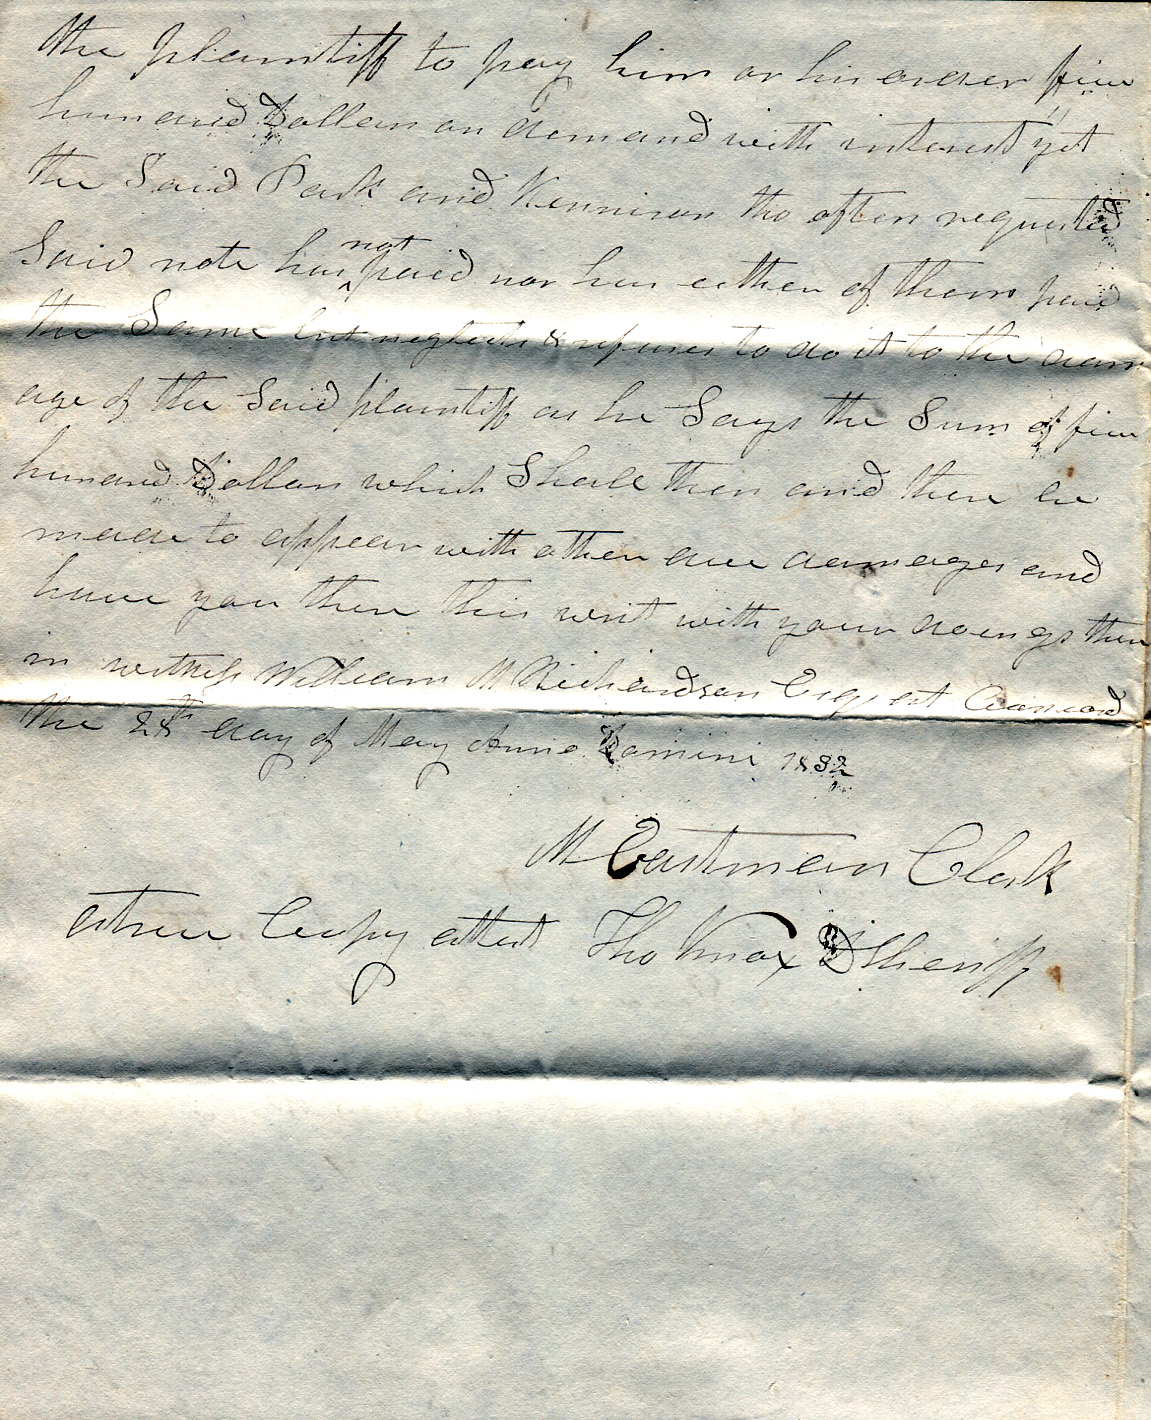 the plaintiff to pay him or his order five
hundred Dollars on demand with interest yet
the Said Park and Kennison tho often requested
Said note has not paid nor has either of them paid
the Same but neglects & refuses to do it to the dam
age of the Said plaintiff as he Says the Sum of five
hundred Dollars which Shall then and there be
made to appear with other due damages and
have you there this writ with your doings then
in witness William M Richardson Esqr at Concord
the 28th day of May Anno Domini 1832
M Eastman Clerk
a true Copy attest Tho Knox D Sheriff